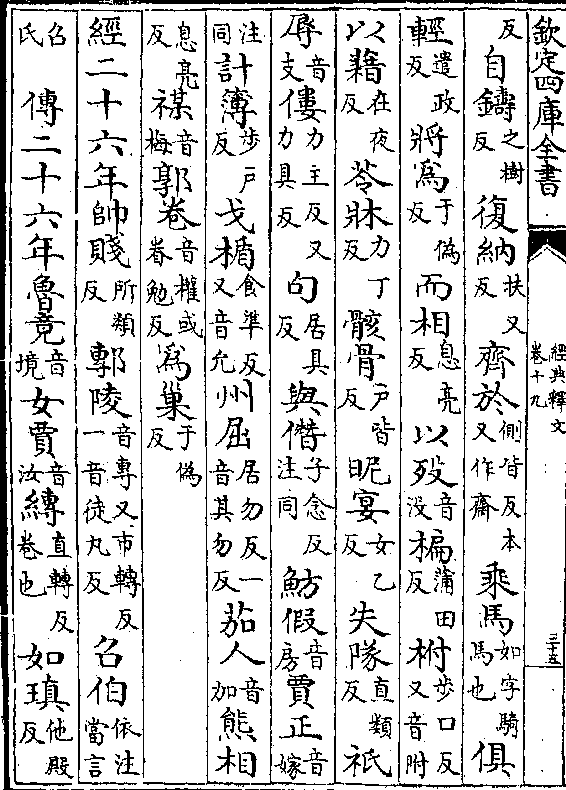 欽定四庫全書 經典釋文 卷十九 三十五
反 自鑄之樹反 復納扶又反 齊於側皆反本又作齋 乘馬如字騎馬也 俱
輕遣政反 將爲于偽反 而相息亮反 以歿音没 楄蒲田反 柎步口反又音附
以藉在夜反 苓牀力丁反 骸骨戶皆反 昵宴女乙反 失隊直類反 祇
辱音支 僂力主反又力具反 句居具反 與僭子念反注同 魴假音房 賈正音嫁
注同 計簿步戶反 戈楯食準反又音允 州屈居勿反一音其勿反 茄人音加 熊相
息亮反 禖音梅 郭卷音權或眷勉反 爲巢于偽反
經二十六年帥賤所類反 鄟陵音專又市轉反一音徒丸反 召伯依注當言
召氏 傳二十六年魯竟音境 女賈音汝 縳直轉反卷也 如瑱他殿反